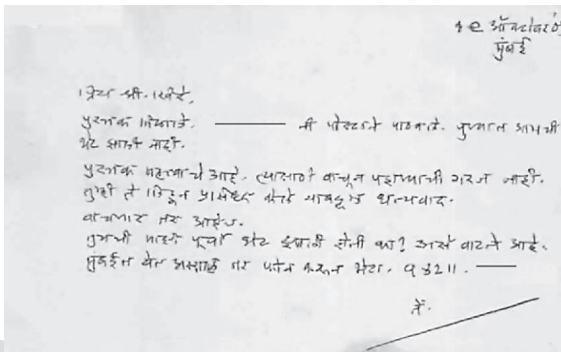 १९ ऑक्टोबर
मुंबई
प्रिय श्री.
पुस्तक मिळाले. ——— नी पोस्टाने पाठवले. पुण्यात आपली
भेट झाली नाही.
पुस्तक महत्वाचे आहे. त्यासाठी वाचून पहाण्याची गरज नाही.
तुम्ही ते लिहून प्रसिद्ध केले याबद्दल धन्यवाद.
वाचणार तर आहेच.
तुमची माझी पूर्वी भेट झाली होती का? असे वाटते आहे.
मुंबईत येत असलात तर फोन करून भेटा. ९३२11. ———
तें.